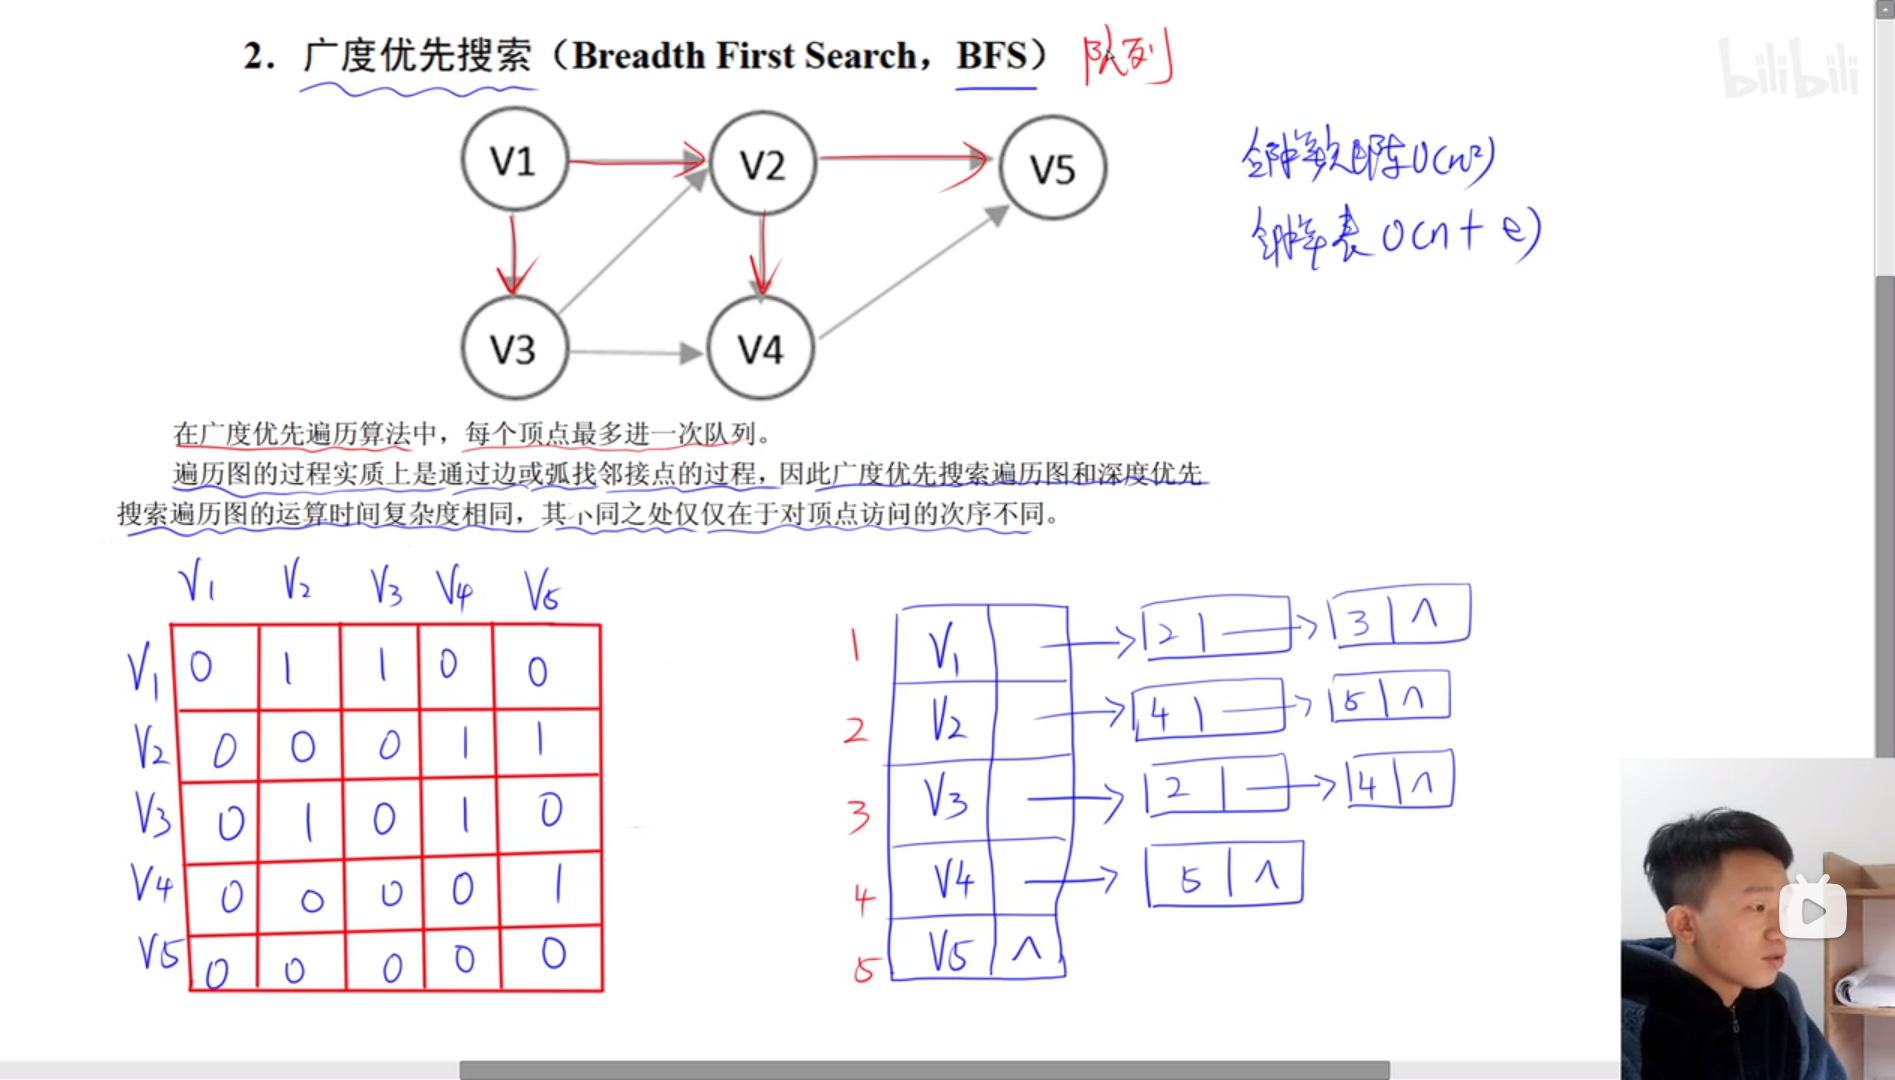 2. 广度优先搜索（Breadth First Search，BFS） 队列
bilibili
邻接矩阵 O(n²)
邻接表 O(n + e)
V1 V2 V5
V3 V4
在广度优先遍历算法中，每个顶点最多进一次队列。
遍历图的过程实质上是通过边或弧找邻接点的过程，因此广度优先搜索遍历图和深度优先
搜索遍历图的运算时间复杂度相同，其不同之处仅仅在于对顶点访问的次序不同。
V1 V2 V3 V4 V5
V1 0 1 1 0 0
V2 0 0 0 1 1
V3 0 1 0 1 0
V4 0 0 0 0 1
V5 0 0 0 0 0
1 V1 → 2 → 3 ∧
2 V2 → 4 → 5 ∧
3 V3 → 2 → 4 ∧
4 V4 → 5 ∧
5 V5 ∧